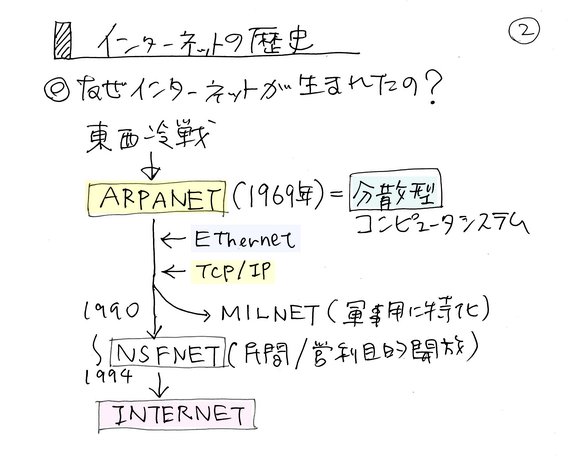 インターネットの歴史 ②
◎なぜインターネットが生まれたの?
東西冷戦
ARPANET (1969年) = 分散型
コンピュータシステム
← Ethernet
← TCP/IP
1990 → MILNET (軍事用に特化)
〜 NSFNET (民間/営利目的開放)
1994
INTERNET